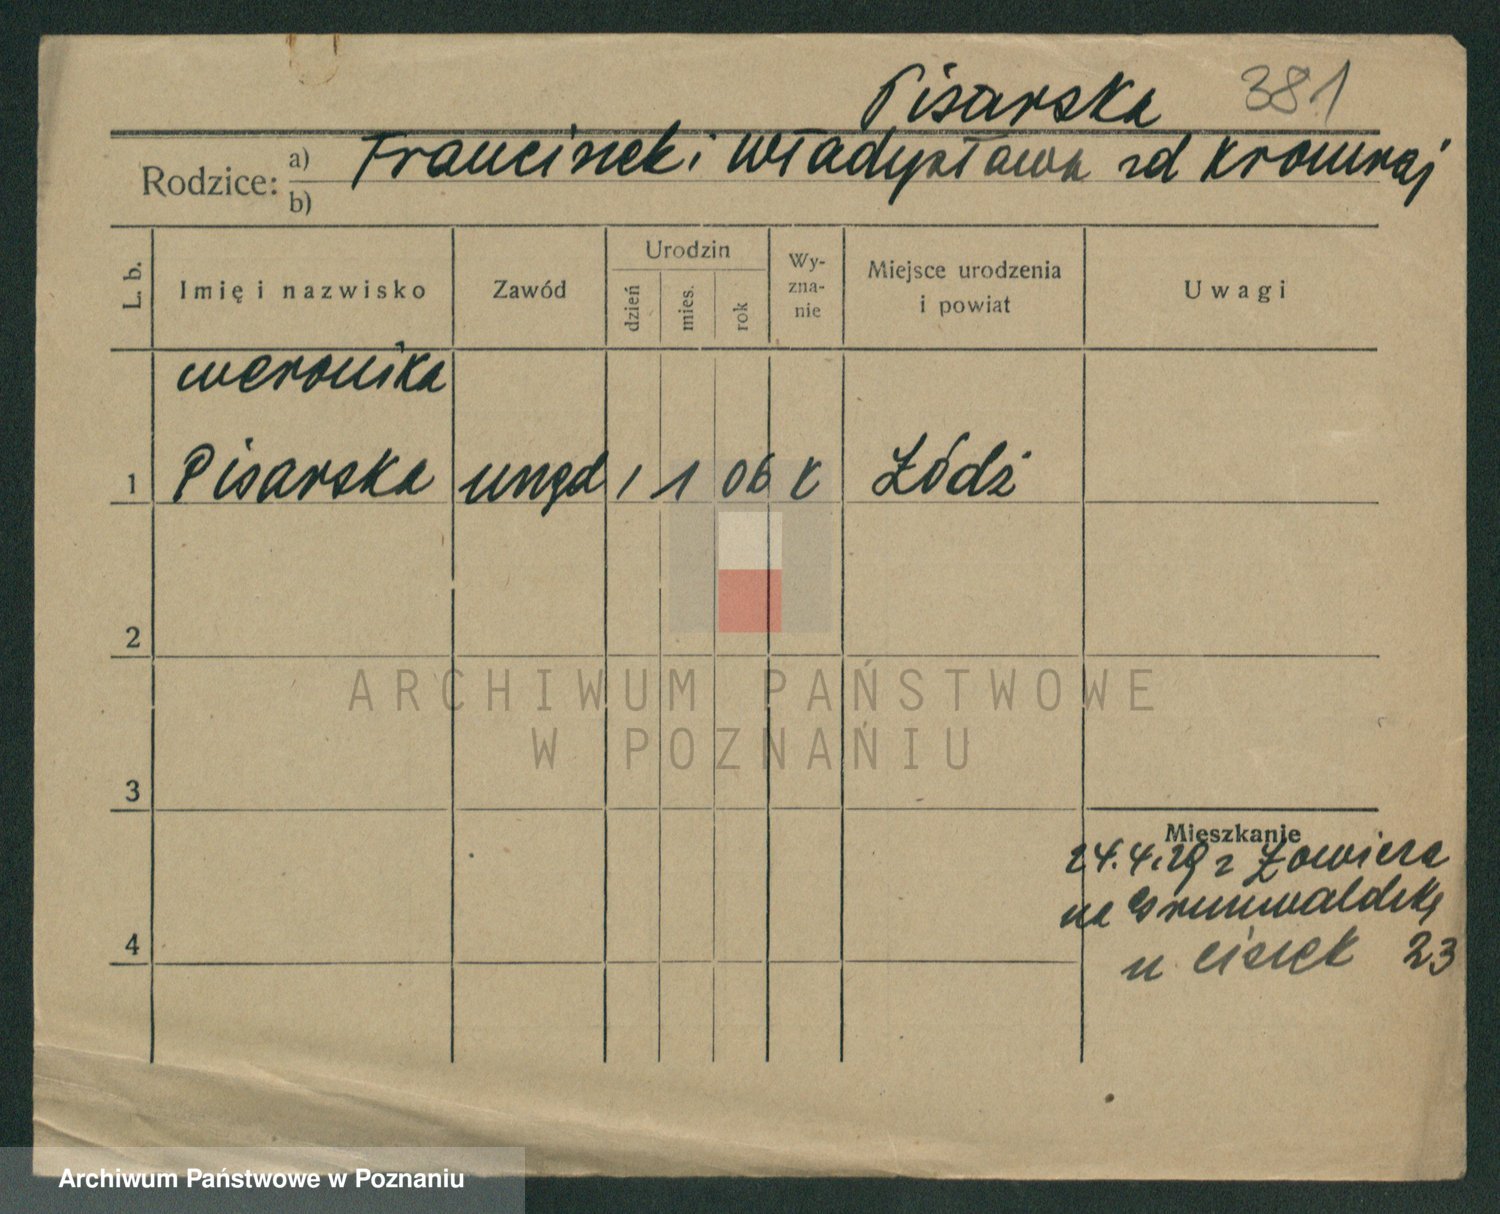 Pisarska 381
Rodzice: a) Franciszek i Władysława zd
b)
L. b.
Imię i nazwisko
Zawód
Urodzin
dzień
mies.
rok
Wy-
zna-
nie
Miejsce urodzenia
i powiat
Uwagi
Weronika
1 Pisarska urzęd 1 1 06 k Łódź
2
3
4
Mieszkanie
24.4.29 z
na Grunwaldzką
23
ARCHIWUM PAŃSTWOWE
W POZNANIU
Archiwum Państwowe w Poznaniu